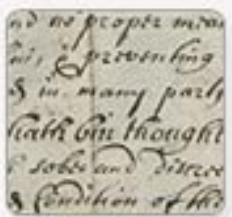 nd no proper mean
his, & preventing
& in many partly
hath bin thought
sober and discree
& Condition of the